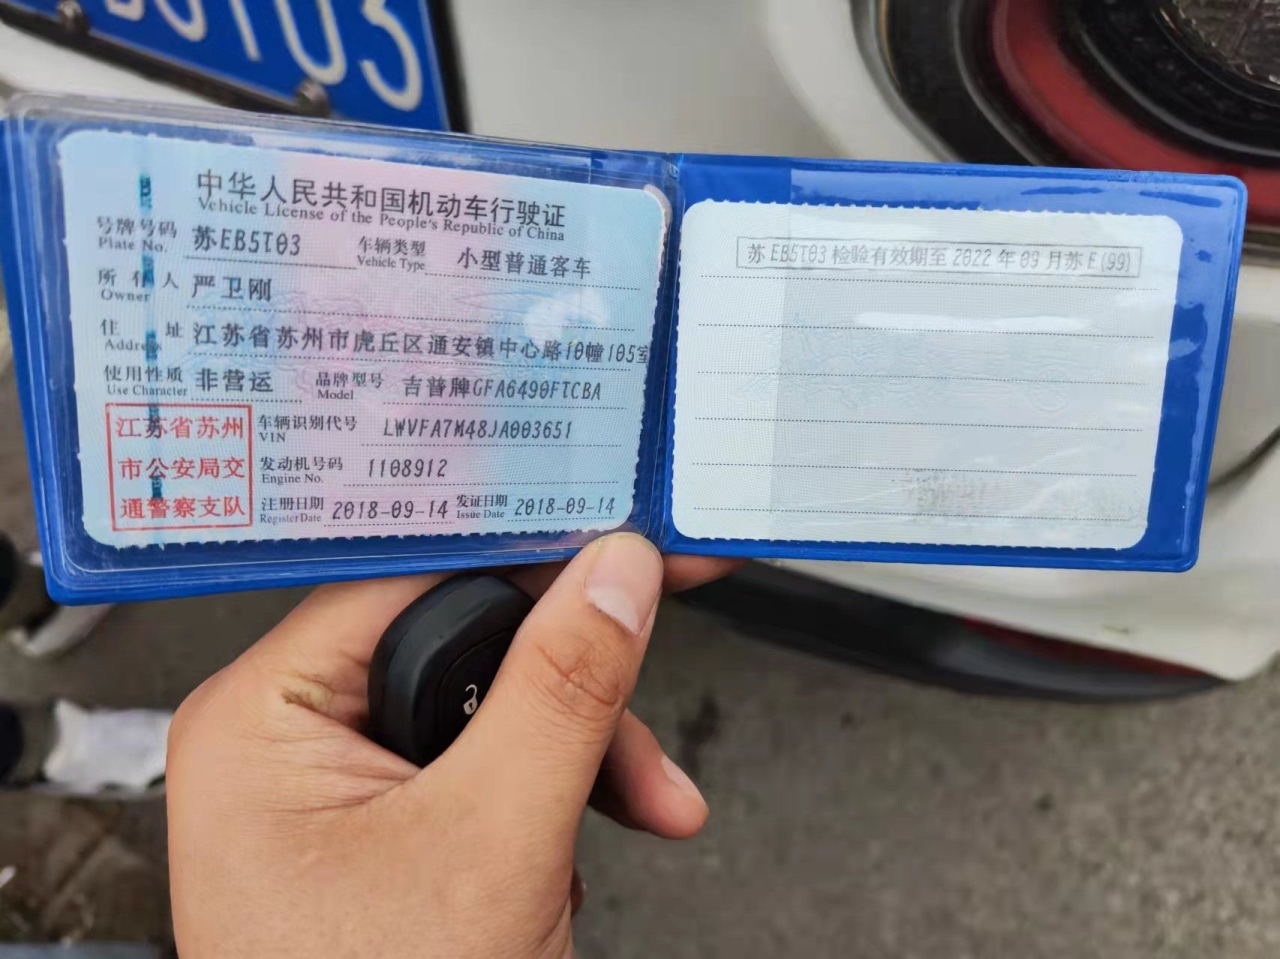 B5T03
中华人民共和国机动车行驶证
Vehicle License of the People's Republic of China
号牌号码 苏EB5T03 车辆类型 小型普通客车
Plate No. Vehicle Type
所有人 严卫刚
Owner
住址 江苏省苏州市虎丘区通安镇中心路10幢105室
Address
使用性质 非营运 品牌型号 吉普牌GFA6490FTCBA
Use Character Model
江苏省苏州
市公安局交
通警察支队
车辆识别代号 LWVFA7M48JA003651
VIN
发动机号码 1108912
Engine No.
注册日期 2018-09-14 发证日期 2018-09-14
Register Date Issue Date
苏EB5T03检验有效期至2022年09月苏E(99)